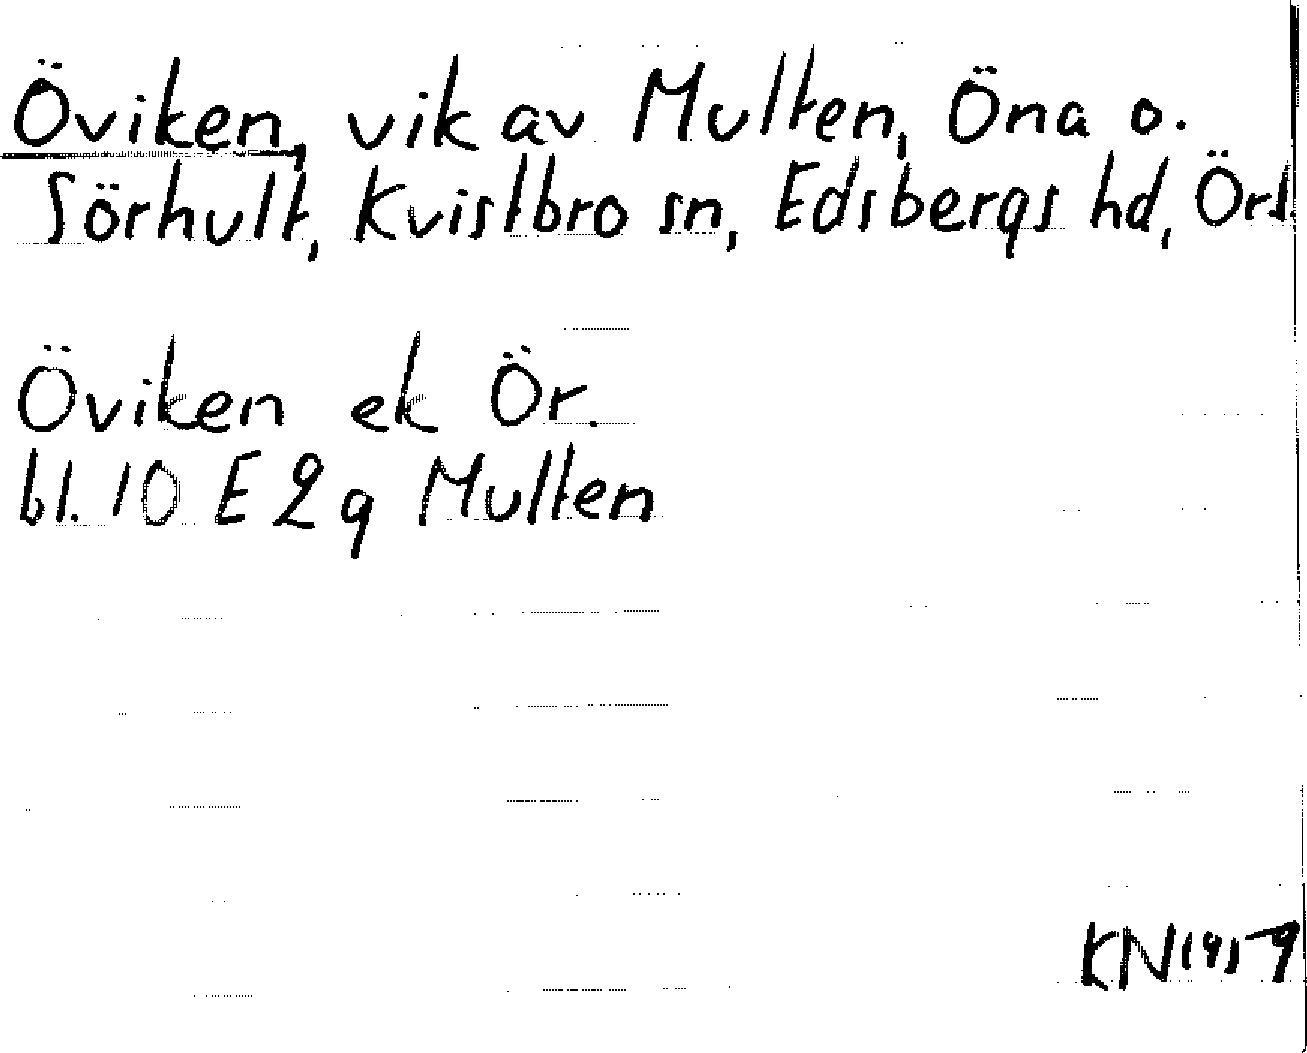 Öviken, vik av Multen, Öna o.
Sörhult, Kvistbro sn, Edsbergs hd, Örl.
Öviken ek Ör.
bl. 10 E 2 g Multen